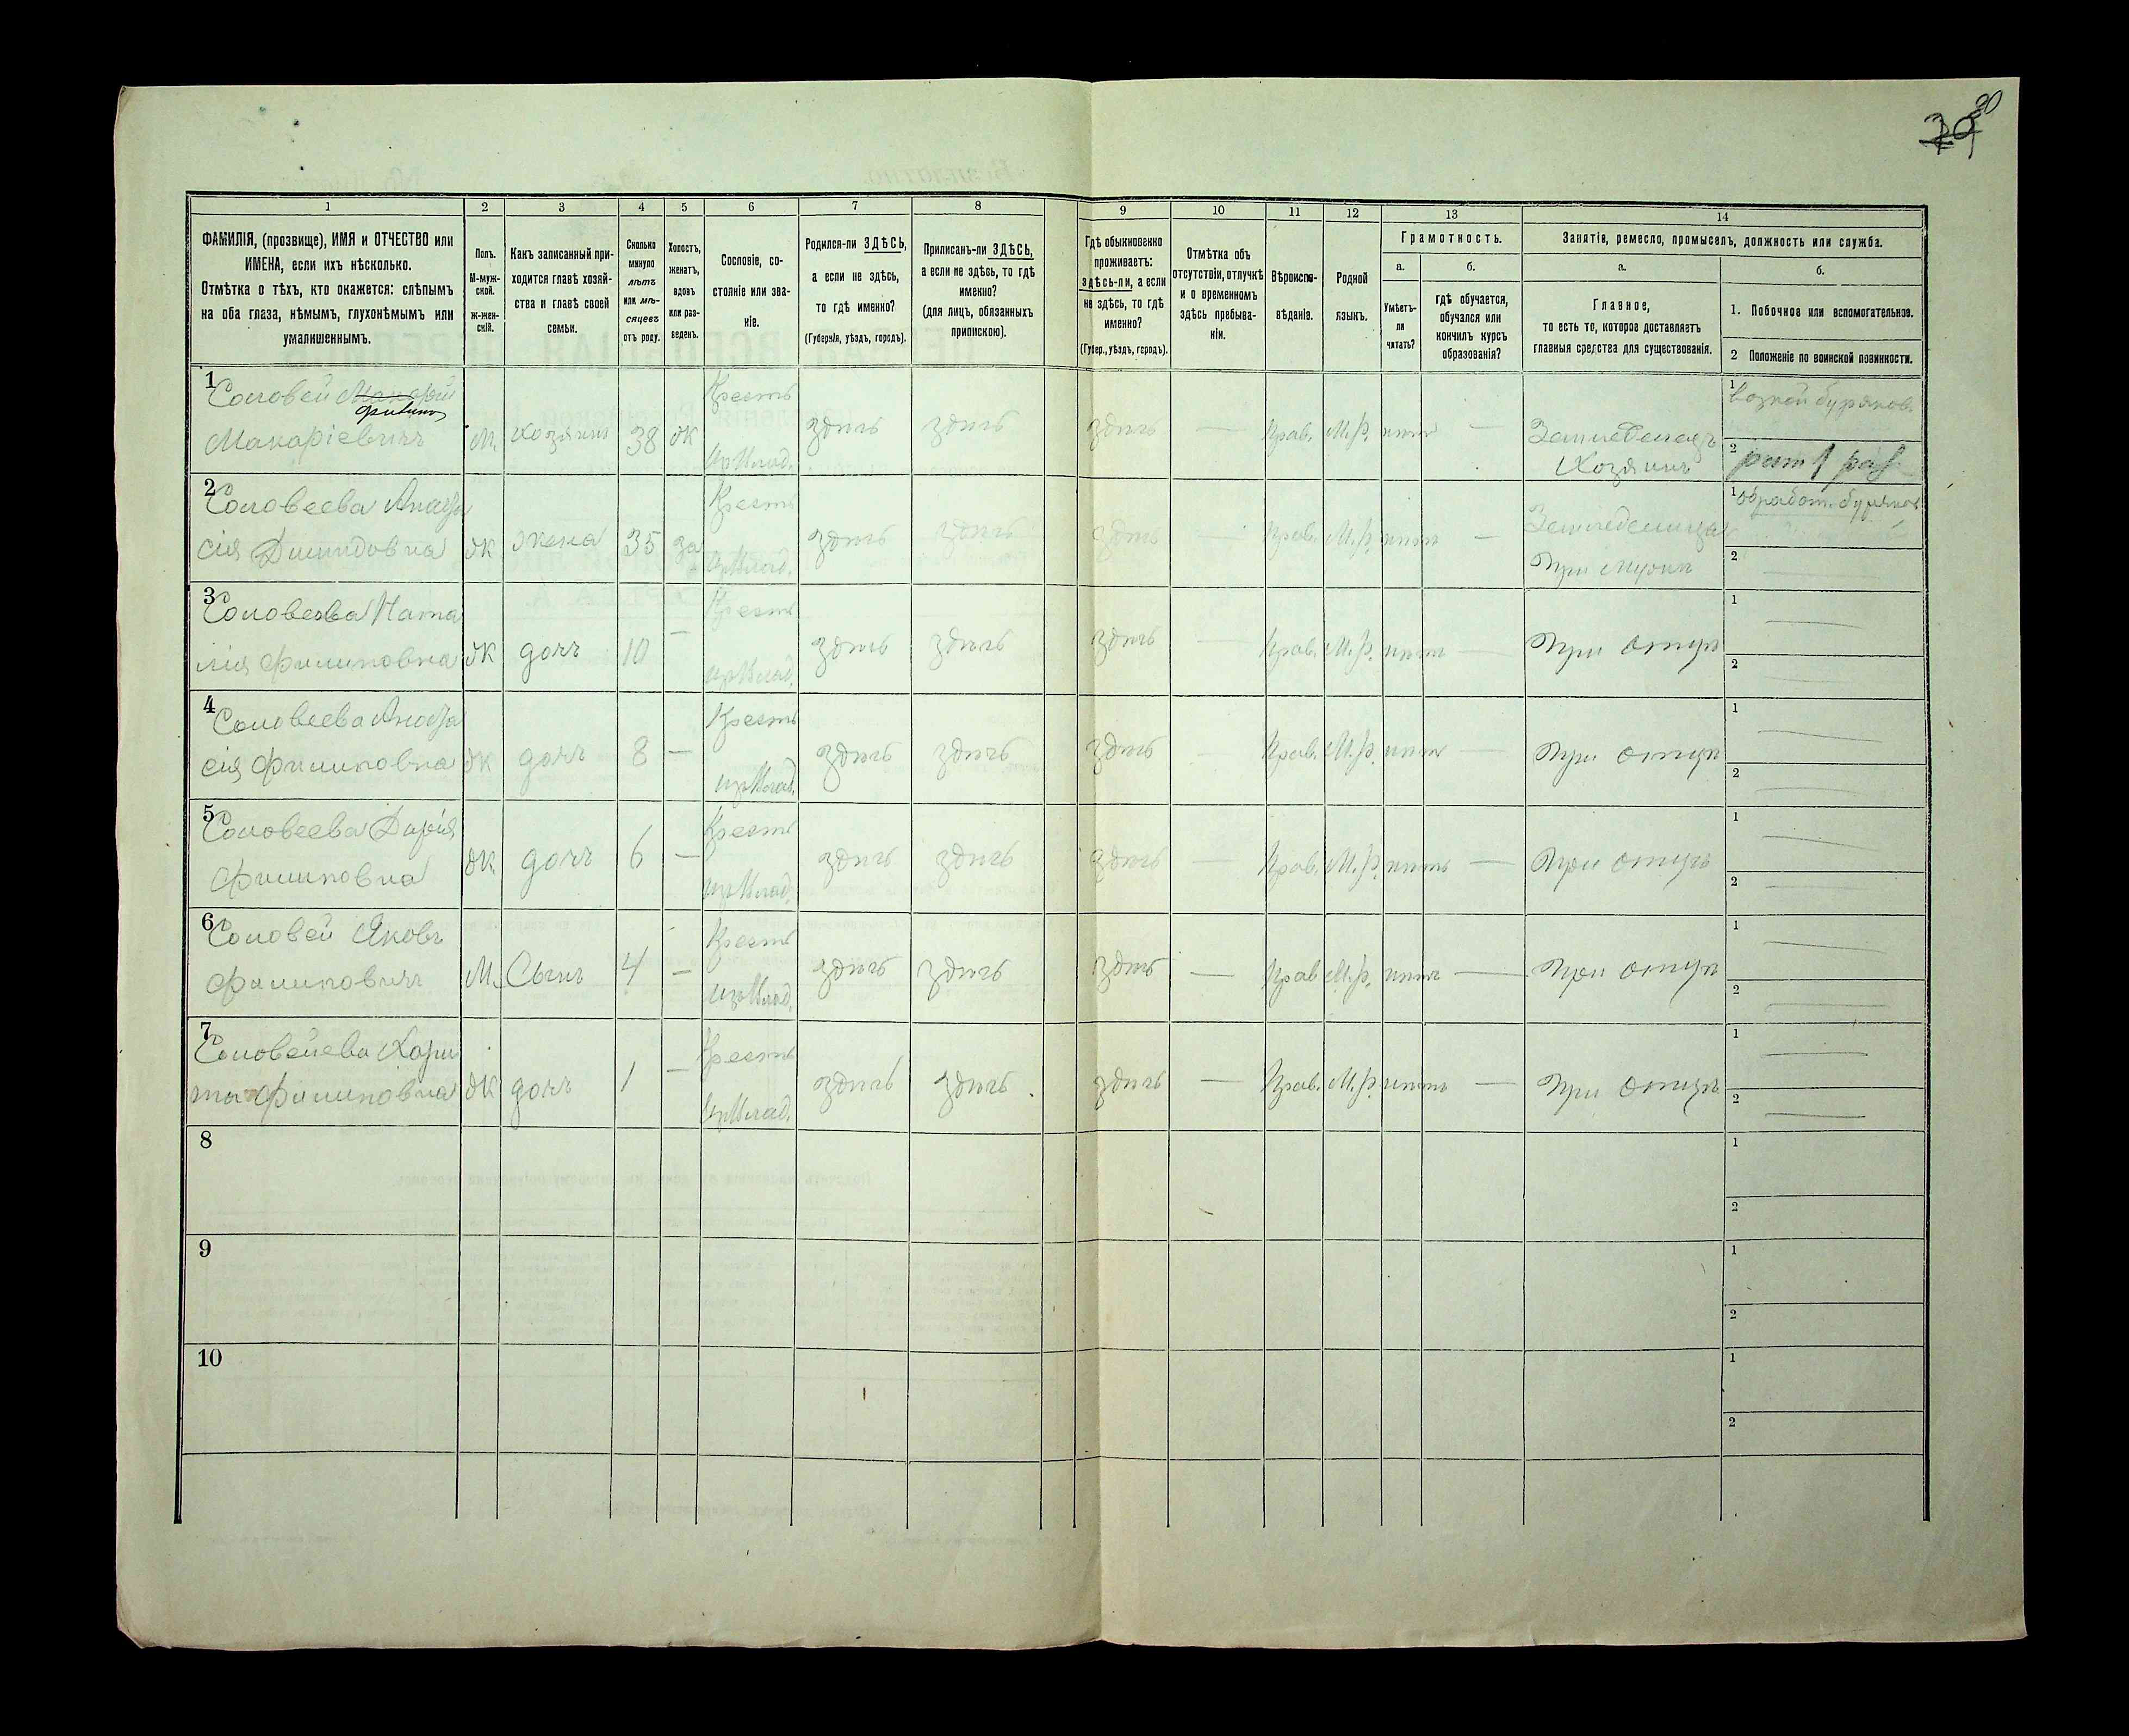 20
1 2 3 4 5 6 7 8 9 10 11 12 13 14
ФАМИЛІЯ, (прозвище), ИМЯ и ОТЧЕСТВО или
ИМЕНА, если ихъ нѣсколько.
Отмѣтка о тѣхъ, кто окажется: слѣпымъ
на оба глаза, нѣмымъ, глухонѣмымъ или
умалишеннымъ.
Полъ.
М-муж-
ской.
Ж-жен-
скій.
Какъ записанный при-
ходится главѣ хозяй-
ства и главѣ своей
семьи.
Сколько
минуло
лѣтъ
или мѣ-
сяцевъ
отъ роду.
Холостъ,
женатъ,
вдовъ
или раз-
веденъ.
Сословіе, со-
стояніе или зва-
ніе.
Родился-ли ЗДѢСЬ,
а если не здѣсь,
то гдѣ именно?
(Губернія, уѣздъ, городъ).
Приписанъ-ли ЗДѢСЬ,
а если не здѣсь, то гдѣ
именно?
(для лицъ, обязанныхъ
припискою).
Гдѣ обыкновенно
проживаетъ:
здѣсь-ли, а если
не здѣсь, то гдѣ
именно?
(Губер., уѣздъ, городъ).
Отмѣтка объ
отсутствіи, отлучкѣ
и о временномъ
здѣсь пребыва-
ніи.
Вѣроиспо-
вѣданіе.
Родной
языкъ.
Грамотность.
а.
Умѣетъ-
ли
читать?
б.
гдѣ обучается,
обучался или
кончилъ курсъ
образованія?
Занятіе, ремесло, промыселъ, должность или служба.
а.
Главное,
то есть то, которое доставляетъ
главныя средства для существованія.
б.
1. Побочное или вспомогательное.
2 Положеніе по воинской повинности.
1
Соловей Макарій
Филипъ
Макаріевичъ
М.
хозяинъ
38
Ж
Крестъ
изъ Влад.
здѣсь
здѣсь
здѣсь
—
Прав.
М.р.
нѣтъ
—
Земледѣлецъ
Хозяинъ
1
возкой буряковъ
2
2
Соловеева Анаста
сія Демидовна
Ж
жена
35
за
Крестъ
изъ Влад.
здѣсь
здѣсь
здѣсь
—
Прав.
М.р.
нѣтъ
—
Земледѣлица
При мужѣ
1
обработ. буряков
2
—
3
Соловеева Ната
лія Филиповна
Ж
дочь
10
—
Крестъ
изъ Влад.
здѣсь
здѣсь
здѣсь
—
Прав.
М.р.
нѣтъ
—
При отцѣ
1 —
2 —
4
Соловеева Анаста
сія Филиповна
Ж
дочь
8
—
Крестъ
изъ Влад.
здѣсь
здѣсь
здѣсь
—
Прав.
М.р.
нѣтъ
—
При отцѣ
1 —
2 —
5
Соловеева Дарія
Филиповна
Ж
дочь
6
—
Крестъ
изъ Влад.
здѣсь
здѣсь
здѣсь
—
Прав.
М.р.
нѣтъ
—
При отцѣ
1 —
2 —
6
Соловей Яковъ
Филиповичъ
М.
Сынъ
4
—
Крестъ
изъ Влад.
здѣсь
здѣсь
здѣсь
—
Прав
М.р.
нѣтъ
—
При отцѣ
1 —
2 —
7
Соловейева Хари
тина Филиповна
Ж
дочь
1
—
Крестъ
изъ Влад.
здѣсь
здѣсь
здѣсь
—
Прав.
М.р.
нѣтъ
—
При отцѣ
1 —
2 —
8
1
2
9
1
2
10
1
2